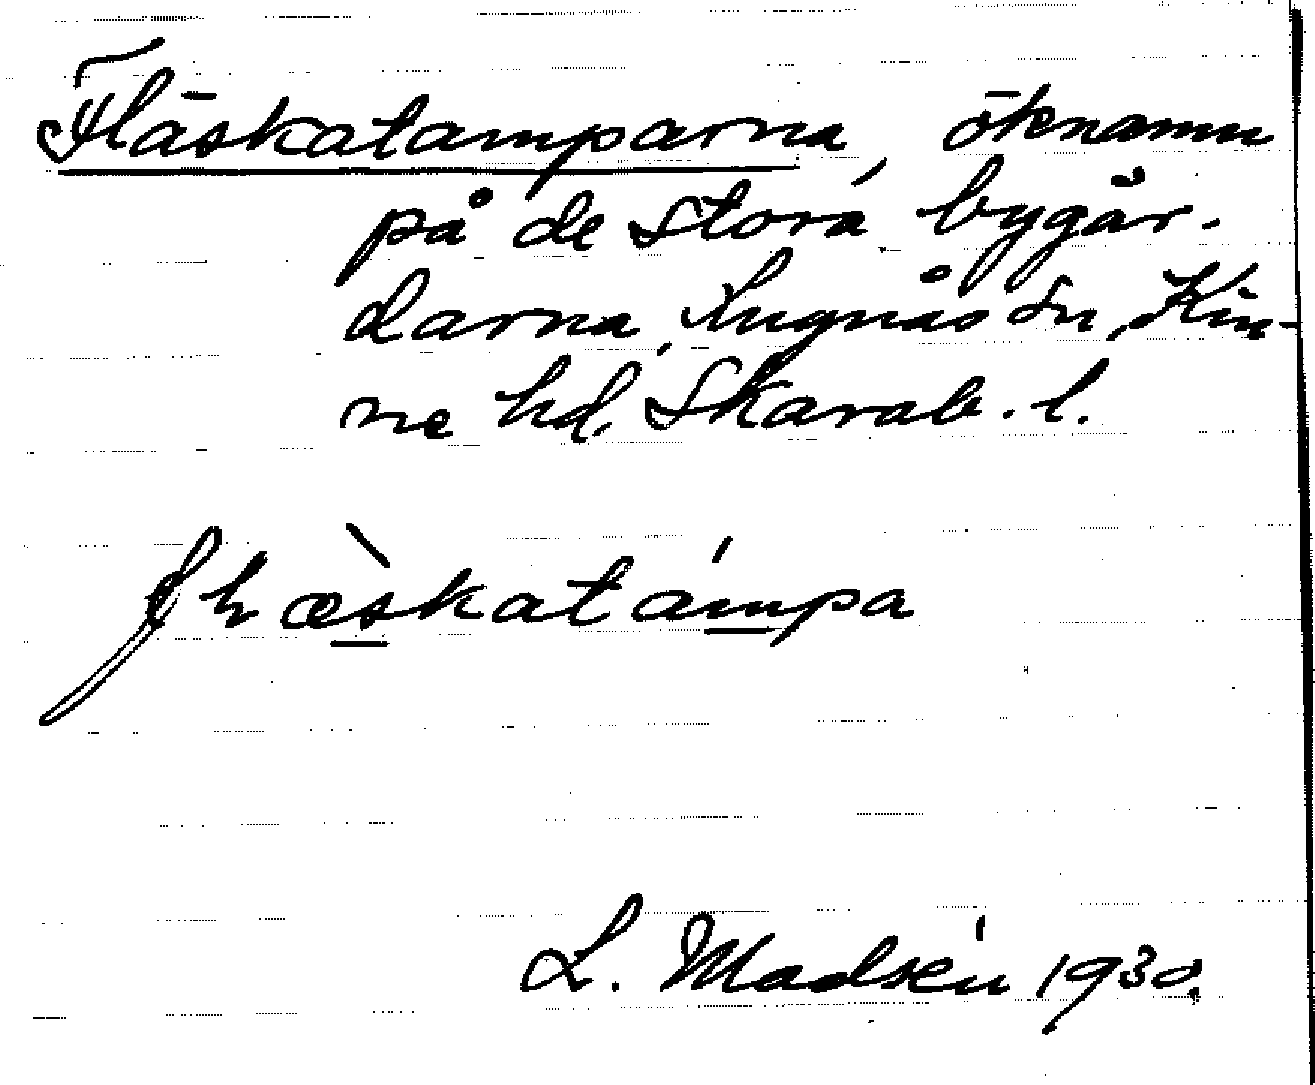 Fläskatamparna, öknamn
på de stora bygår-
darna, Lugnås sn, Kin-
ne hd, Skarab. l.
flæ̀skatámpa
L. Madsén 1930.